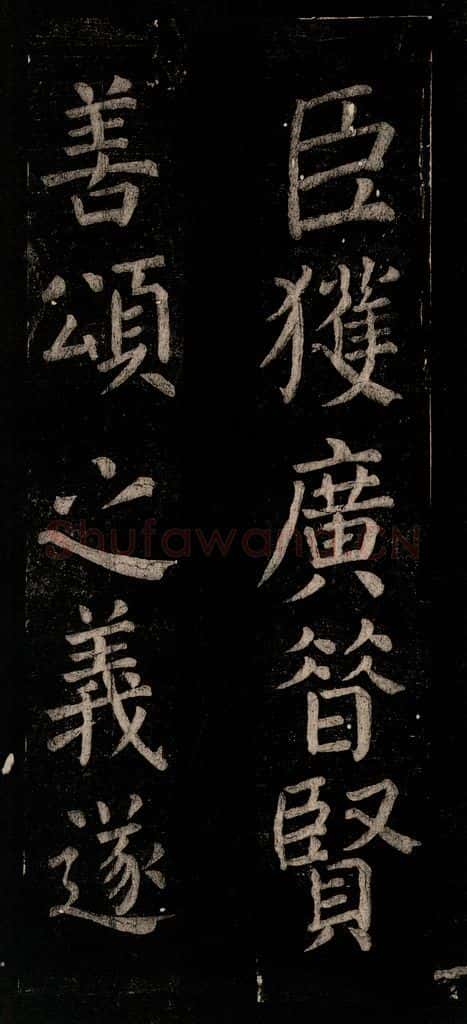 臣獲廣賢
善頌之義遂
Shufawang.CN